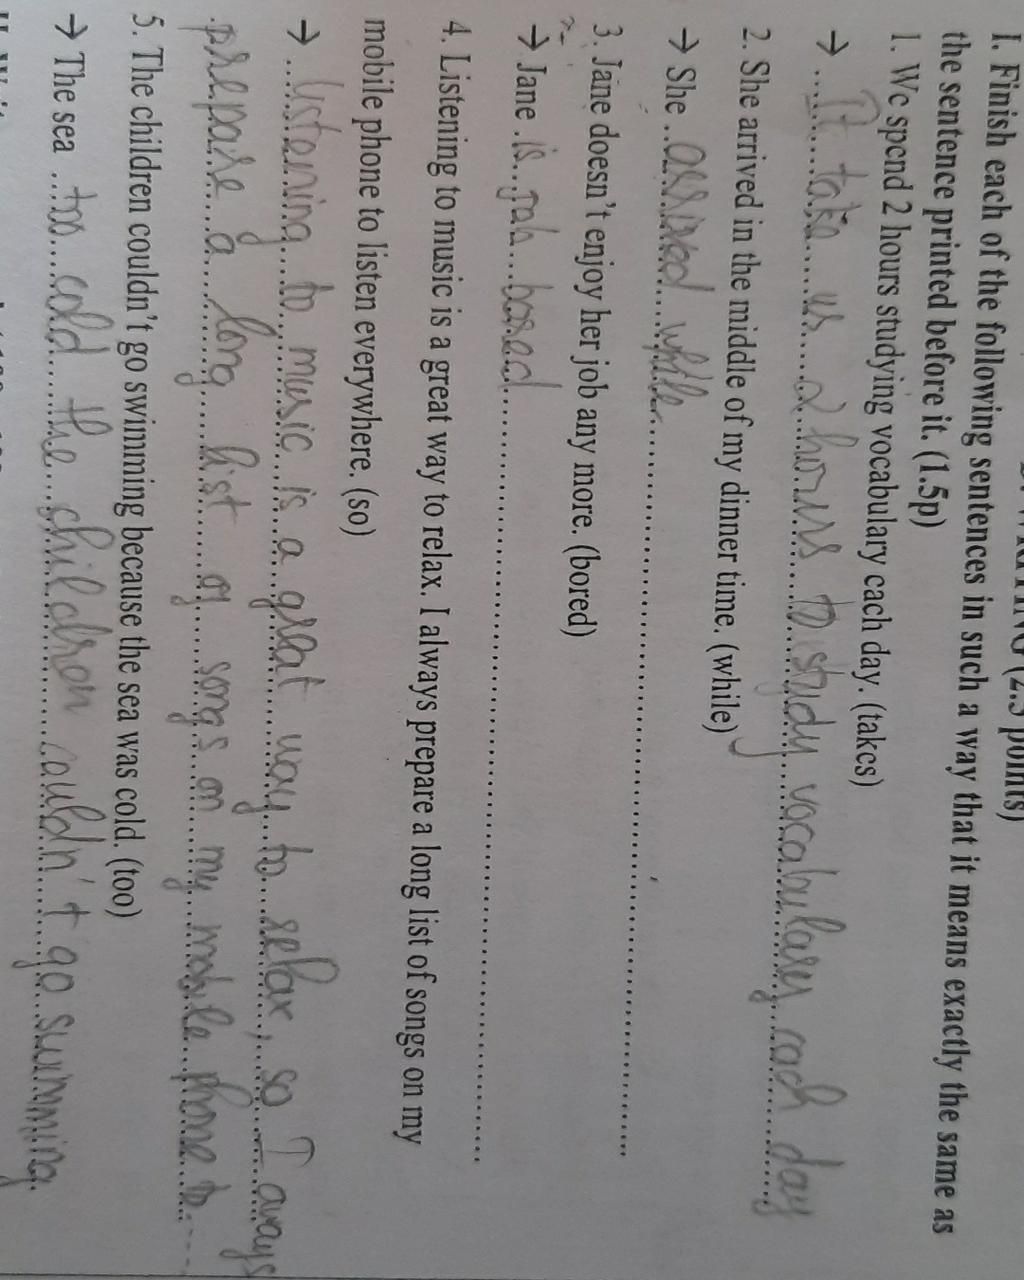 WRITING (2.5 points)
I. Finish each of the following sentences in such a way that it means exactly the same as
the sentence printed before it. (1.5p)
1. We spend 2 hours studying vocabulary each day. (takes)
→ It take us 2 hours to study vocabulary each day
2. She arrived in the middle of my dinner time. (while)
→ She arrived while
3. Jane doesn't enjoy her job any more. (bored)
→ Jane is bored
4. Listening to music is a great way to relax. I always prepare a long list of songs on my
mobile phone to listen everywhere. (so)
→ listening to music is a great way to relax, so I aways
prepare a long list of songs on my mobile phone to
5. The children couldn't go swimming because the sea was cold. (too)
→ The sea too cold the children couldn't go swimming.